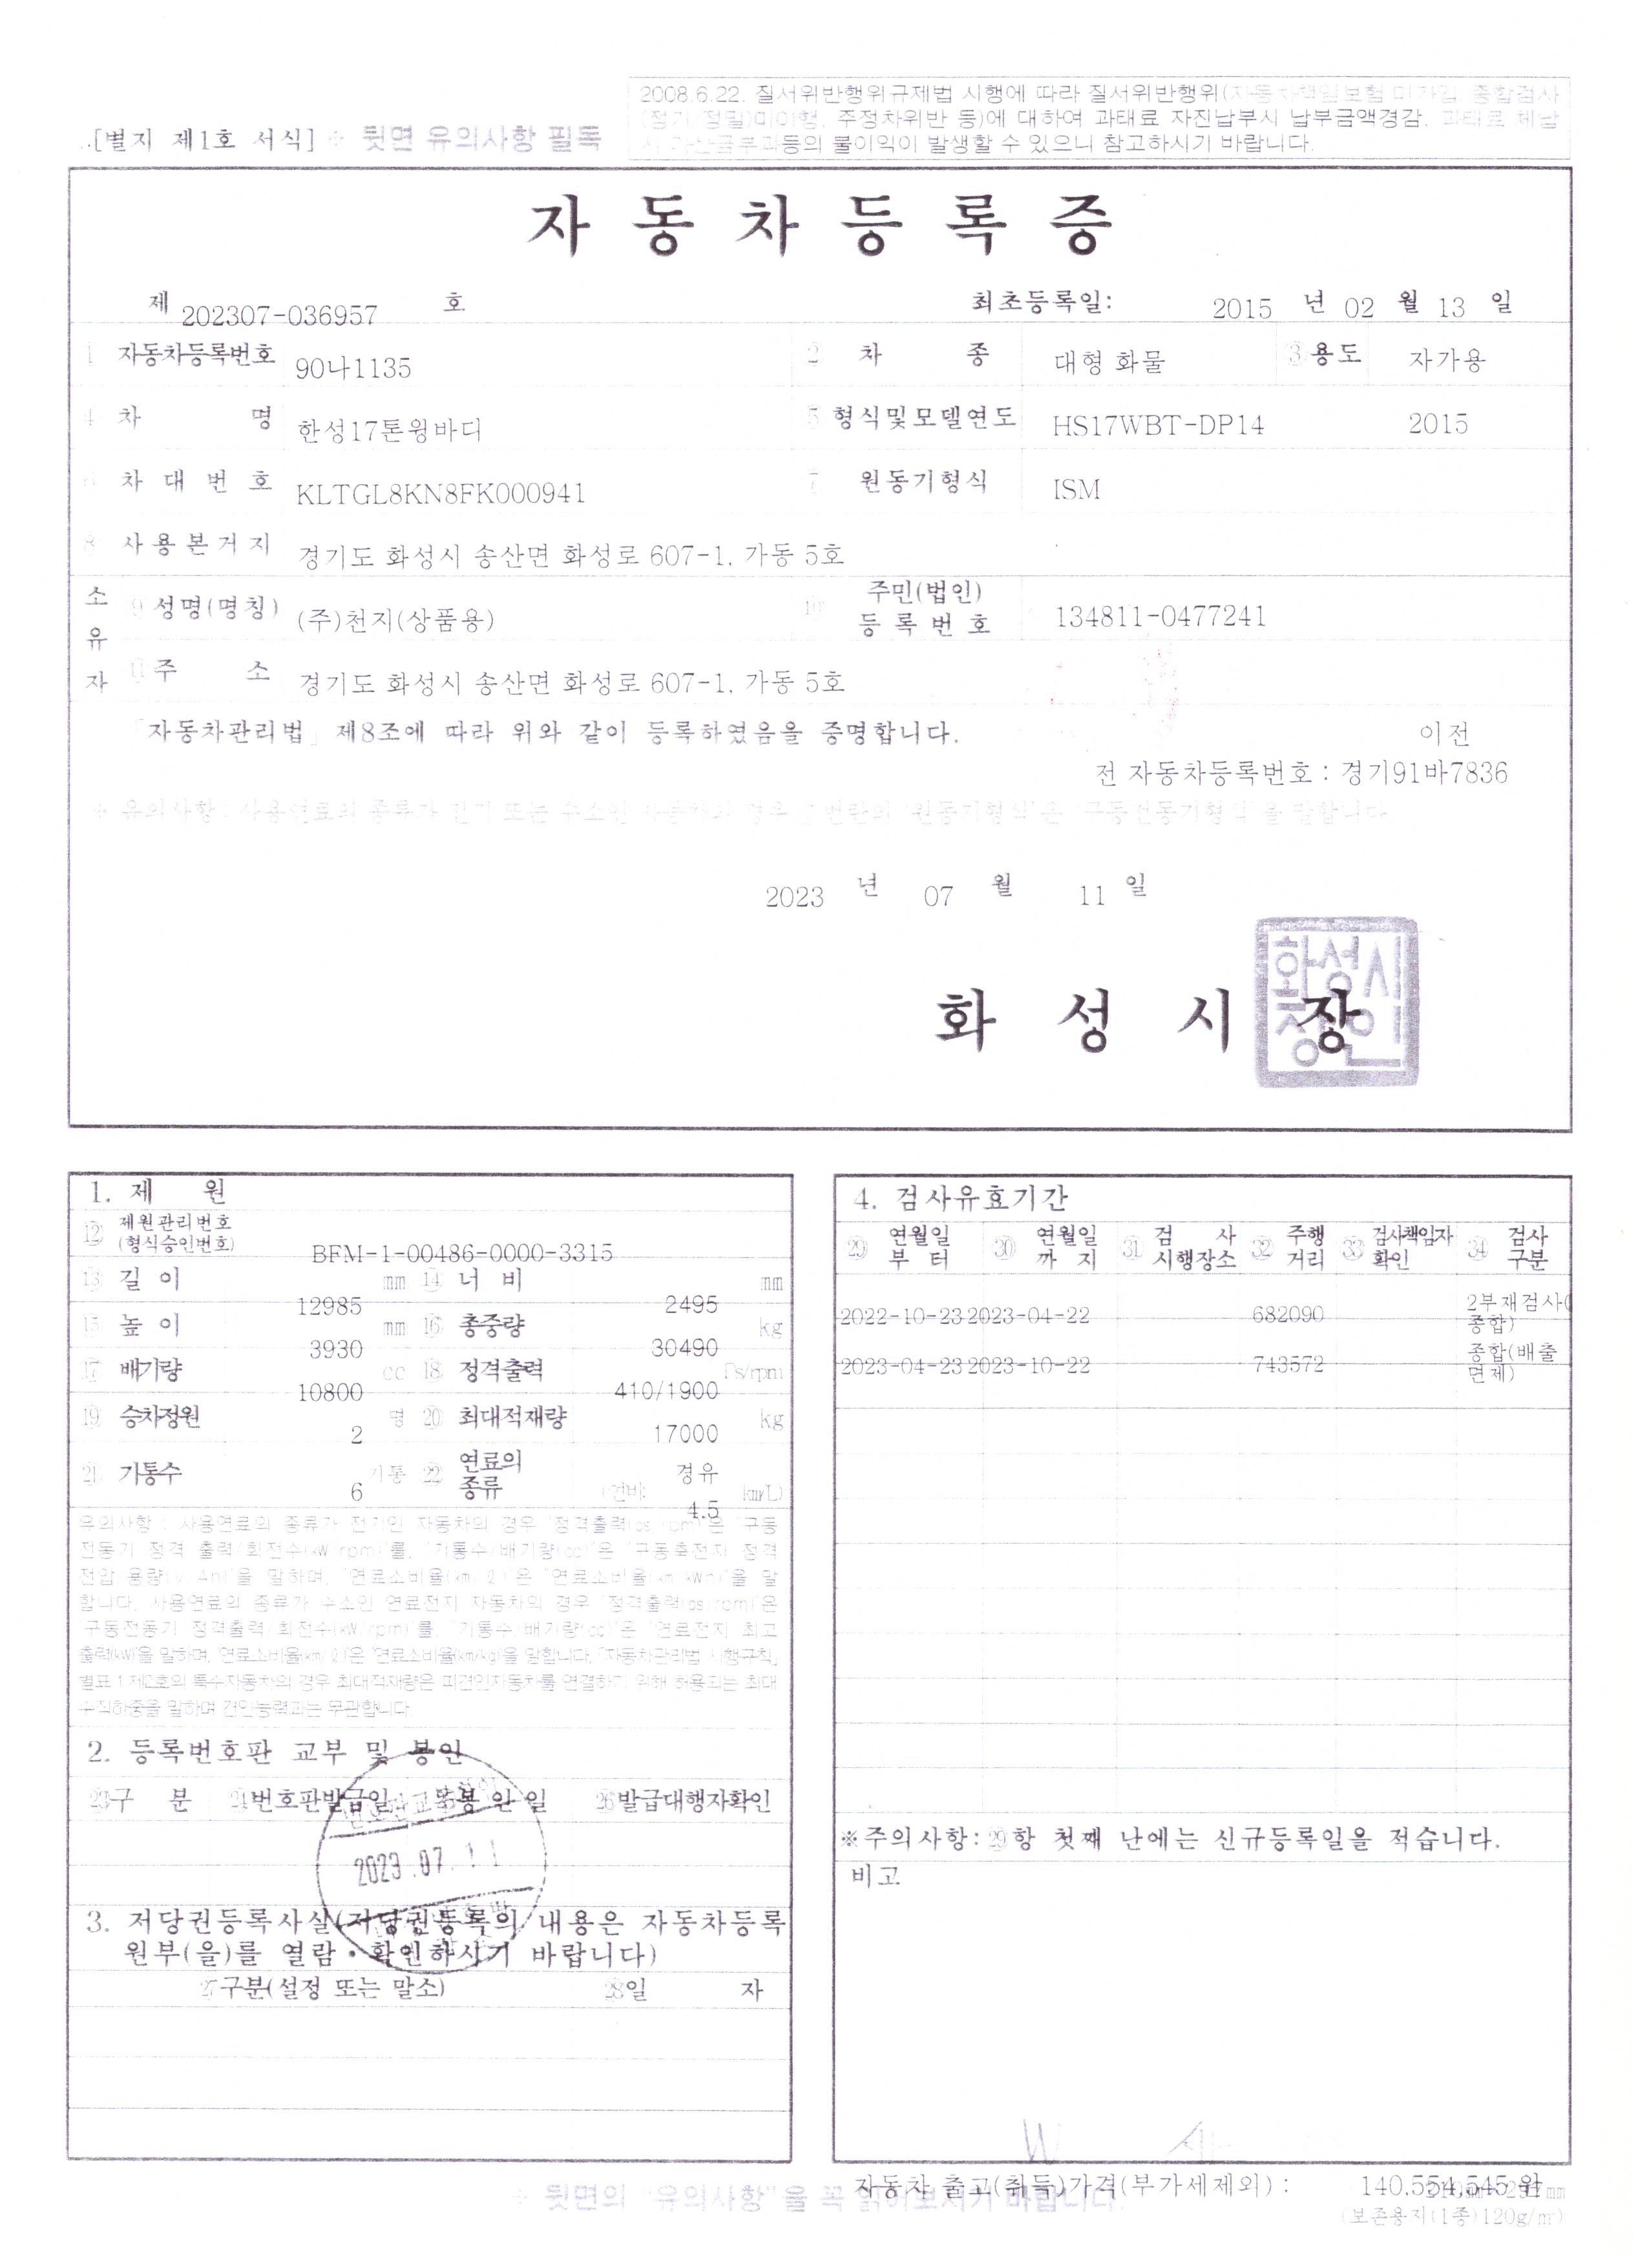 2008.6.22. 질서위반행위규제법 시행에 따라 질서위반행위(자동차책임보험 미가입 종합검사
(정기 정밀)미이행, 주정차위반 등)에 대하여 과태료 자진납부시 납부금액경감, 과태료 체납
시 가산금부과등의 불이익이 발생할 수 있으니 참고하시기 바랍니다.
[별지 제1호 서식] ※ 뒷면 유의사항 필독
자동차등록증
제 202307-036957 호 최초등록일: 2015 년 02 월 13 일
1 자동차등록번호 90나1135 2 차 종 대형 화물 ③ 용도 자가용
4 차 명 한성17톤윙바디 5 형식및모델연도 HS17WBT-DP14 2015
6 차 대 번 호 KLTGL8KN8FK000941 7 원동기형식 ISM
8 사 용 본 거 지 경기도 화성시 송산면 화성로 607-1, 가동 5호
소유자 9 성명(명칭) (주)천지(상품용) 10 주민(법인)등록번호 134811-0477241
11 주 소 경기도 화성시 송산면 화성로 607-1, 가동 5호
「자동차관리법」 제8조에 따라 위와 같이 등록하였음을 증명합니다.
이전
전 자동차등록번호 : 경기91바7836
※ 유의사항 : 사용연료의 종류가 전기 또는 수소인 자동차의 경우 번란의 '원동기형식'은 '구동전동기형식'을 말합니다
2023 년 07 월 11 일
화 성 시 장
화성시장인
1. 제 원
⑫ 제원관리번호(형식승인번호) BFM-1-00486-0000-3315
13 길 이 12985 mm 14 너 비 2495 mm
15 높 이 3930 mm 16 총중량 30490 kg
17 배기량 10800 cc 18 정격출력 410/1900 Ps/rpm
19 승차정원 2 명 20 최대적재량 17000 kg
21 기통수 6 기통 22 연료의 종류 경유 (연비: 4.5 km/L)
유의사항 : 사용연료의 종류가 전기인 자동차의 경우 '정격출력(ps/rpm)'은 '구동
전동기 정격 출력/회전수(kW/rpm)'를, '기통수(배기량(cc)'은 '구동축전지 정격
전압/용량(V/Ah)'을 말하며, '연료소비율(km/ℓ)'은 '연료소비율(km/kWh)'을 말
합니다. 사용연료의 종류가 수소인 연료전지 자동차의 경우 '정격출력(ps/rpm)'은
'구동전동기 정격출력/회전수(kW/rpm)'를, '기통수/배기량(cc)'은 '연료전지 최고
출력(kW)'을 말하며, '연료소비율(km/ℓ)'은 '연료소비율(km/kg)'을 말합니다. 「자동차관리법 시행규칙」
별표 1 제2호의 특수자동차의 경우 최대적재량은 피견인자동차를 연결하기 위해 허용되는 최대
수직하중을 말하며 견인능력과는 무관합니다.
2. 등록번호판 교부 및 봉인
23 구 분 24 번호판발급일 봉인일 26 발급대행자확인
2023.07.11
3. 저당권등록사실(저당권등록의 내용은 자동차등록
원부(을)를 열람·확인하시기 바랍니다)
27 구분(설정 또는 말소) 28 일 자
4. 검사유효기간
29 연월일부터 30 연월일까지 31 검사시행장소 32 주행거리 33 검사책임자확인 34 검사구분
2022-10-23 2023-04-22 682090 2부재검사(종합)
2023-04-23 2023-10-22 743572 종합(배출면제)
※주의사항: 29항 첫째 난에는 신규등록일을 적습니다.
비고
자동차 출고(취득)가격(부가세제외) : 140,554,545 원
※ 뒷면의 "유의사항"을 꼭 읽어보시기 바랍니다.
(보존용지(1종)120g/㎡)